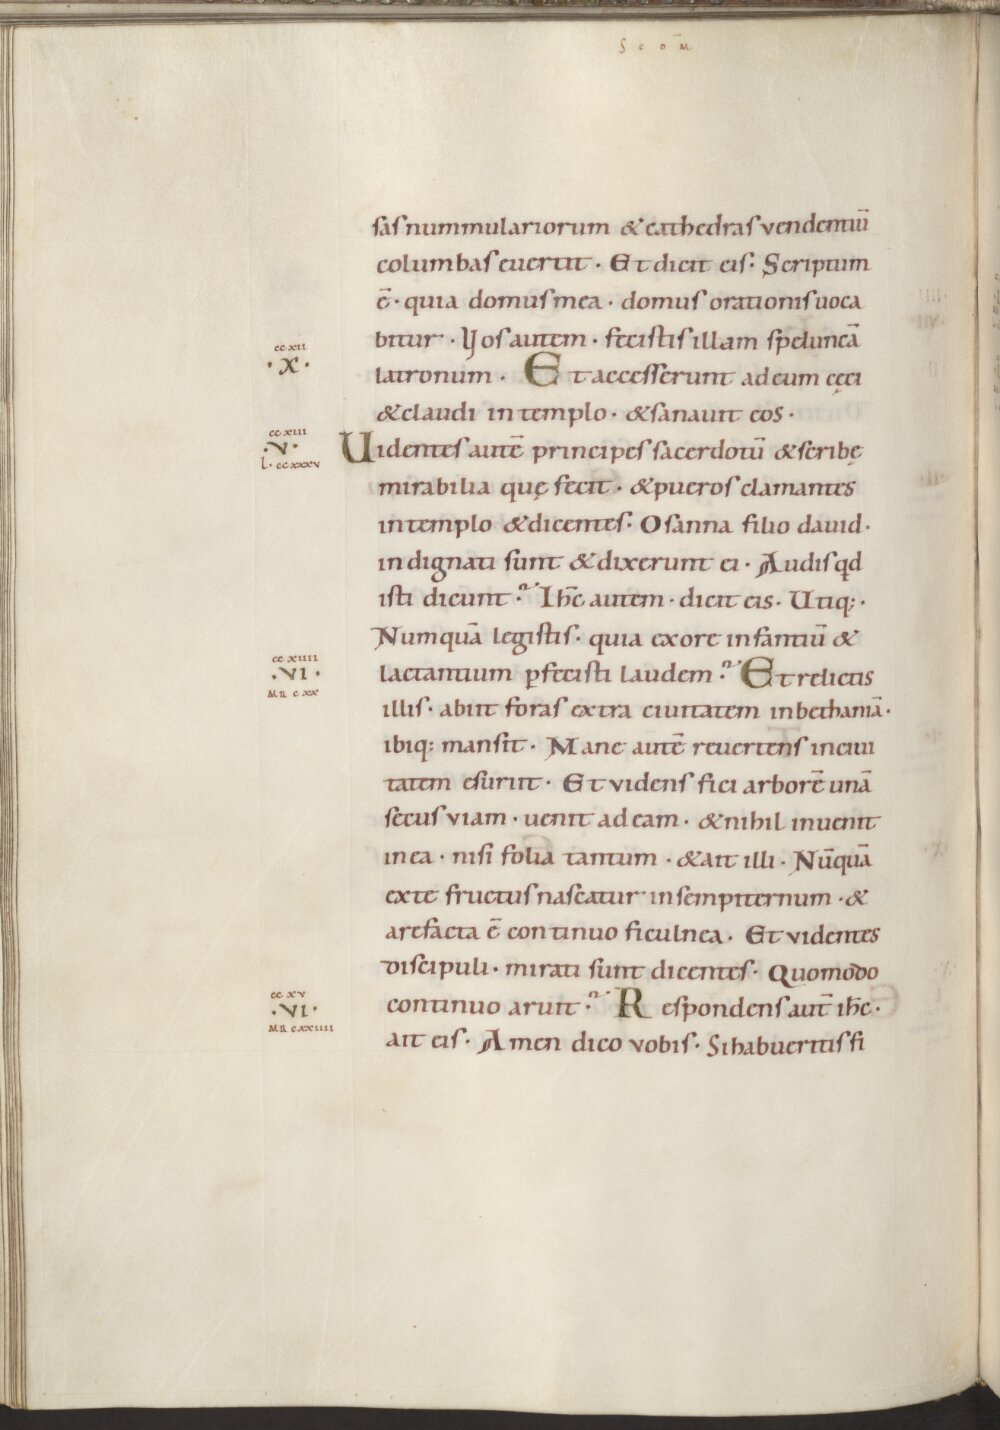 S C D M̄
sas nummulariorum & cathedras vendentiū
columbas euertit · Et dicit eis · Scriptum
ē · quia domus mea · domus orationis uoca
bitur · Vos autem · fecistis illam speluncā
cc xii
· X ·
latronum · Et accesserunt ad eum cęci
& claudi in templo · & sanauit eos ·
cc xiii
· V ·
L · cc xxxv
Uidentes autē principes sacerdotū & scribę
mirabilia quę fecit · & pueros clamantes
in templo & dicentes · Osanna filio dauid ·
indignati sunt & dixerunt ei · Audis qđ
isti dicunt ? Ihc̄ autem · dicit eis · Utiq; ·
Numquā legistis · quia ex ore infantiū &
cc xiiii
· VI ·
MR c xx
lactantium ꝑfecisti laudem ? Et relictis
illis · abiit foras extra ciuitatem in bethaniā ·
ibiq; mansit · Mane autē reuertens in ciui
tatem esuriit · Et videns fici arborē unā
secus viam · uenit ad eam · & nihil inuenit
in ea · nisi folia tantum · & ait illi · Nūquā
ex te fructus nascatur in sempiternum · &
arefacta ē continuo ficulnea · Et videntes
discipuli · mirati sunt dicentes · Quomodo
cc xv
· VI ·
MR c xxiiii
continuo aruit ? Respondens aut̄ ihc̄ ·
ait eis · Amen dico vobis · Si habueritis fi